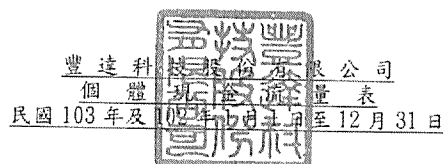 豐達科技股份有限公司
個體現金流量表
民國 103 年及 102 年 1 月 1 日至 12 月 31 日